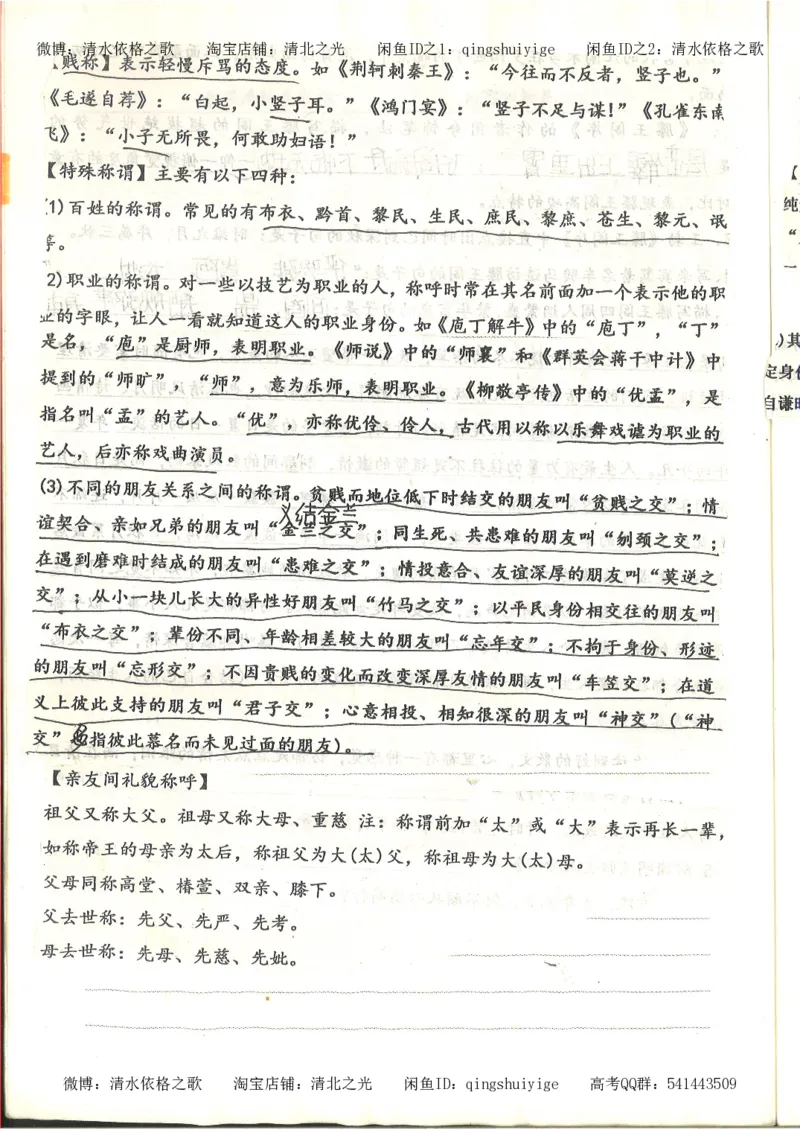 微博：清水依格之歌 淘宝店铺：清北之光 闲鱼ID之1：qingshuiyige 闲鱼ID之2：清水依格之歌
【贱称】表示轻慢斥骂的态度。如《荆轲刺秦王》：“今往而不反者，竖子也。”
《毛遂自荐》：“白起，小竖子耳。”《鸿门宴》：“竖子不足与谋！”《孔雀东南
飞》：“小子无所畏，何敢助妇语！”
【特殊称谓】主要有以下四种：
(1)百姓的称谓。常见的有布衣、黔首、黎民、生民、庶民、黎庶、苍生、黎元、氓
等。
(2)职业的称谓。对一些以技艺为职业的人，称呼时常在其名前面加一个表示他的职
业的字眼，让人一看就知道这人的职业身份。如《庖丁解牛》中的“庖丁”，“丁”
是名，“庖”是厨师，表明职业。《师说》中的“师襄”和《群英会蒋干中计》中
提到的“师旷”，“师”，意为乐师，表明职业。《柳敬亭传》中的“优孟”，是
指名叫“孟”的艺人。“优”，亦称优伶、伶人，古代用以称以乐舞戏谑为职业的
艺人，后亦称戏曲演员。
(3)不同的朋友关系之间的称谓。贫贱而地位低下时结交的朋友叫“贫贱之交”；情
义结金兰
谊契合、亲如兄弟的朋友叫“金兰之交”；同生死、共患难的朋友叫“刎颈之交”；
在遇到磨难时结成的朋友叫“患难之交”；情投意合、友谊深厚的朋友叫“莫逆之
交”；从小一块儿长大的异性好朋友叫“竹马之交”；以平民身份相交往的朋友叫
“布衣之交”；辈份不同、年龄相差较大的朋友叫“忘年交”；不拘于身份、形迹
的朋友叫“忘形交”；不因贵贱的变化而改变深厚友情的朋友叫“车笠交”；在道
义上彼此支持的朋友叫“君子交”；心意相投、相知很深的朋友叫“神交”（“神
交”也指彼此慕名而未见过面的朋友）。
【亲友间礼貌称呼】
祖父又称大父。祖母又称大母、重慈 注：称谓前加“太”或“大”表示再长一辈，
如称帝王的母亲为太后，称祖父为大(太)父，称祖母为大(太)母。
父母同称高堂、椿萱、双亲、膝下。
父去世称：先父、先严、先考。
母去世称：先母、先慈、先妣。
纯
定身份
自谦
微博：清水依格之歌 淘宝店铺：清北之光 闲鱼ID：qingshuiyige 高考QQ群：541443509